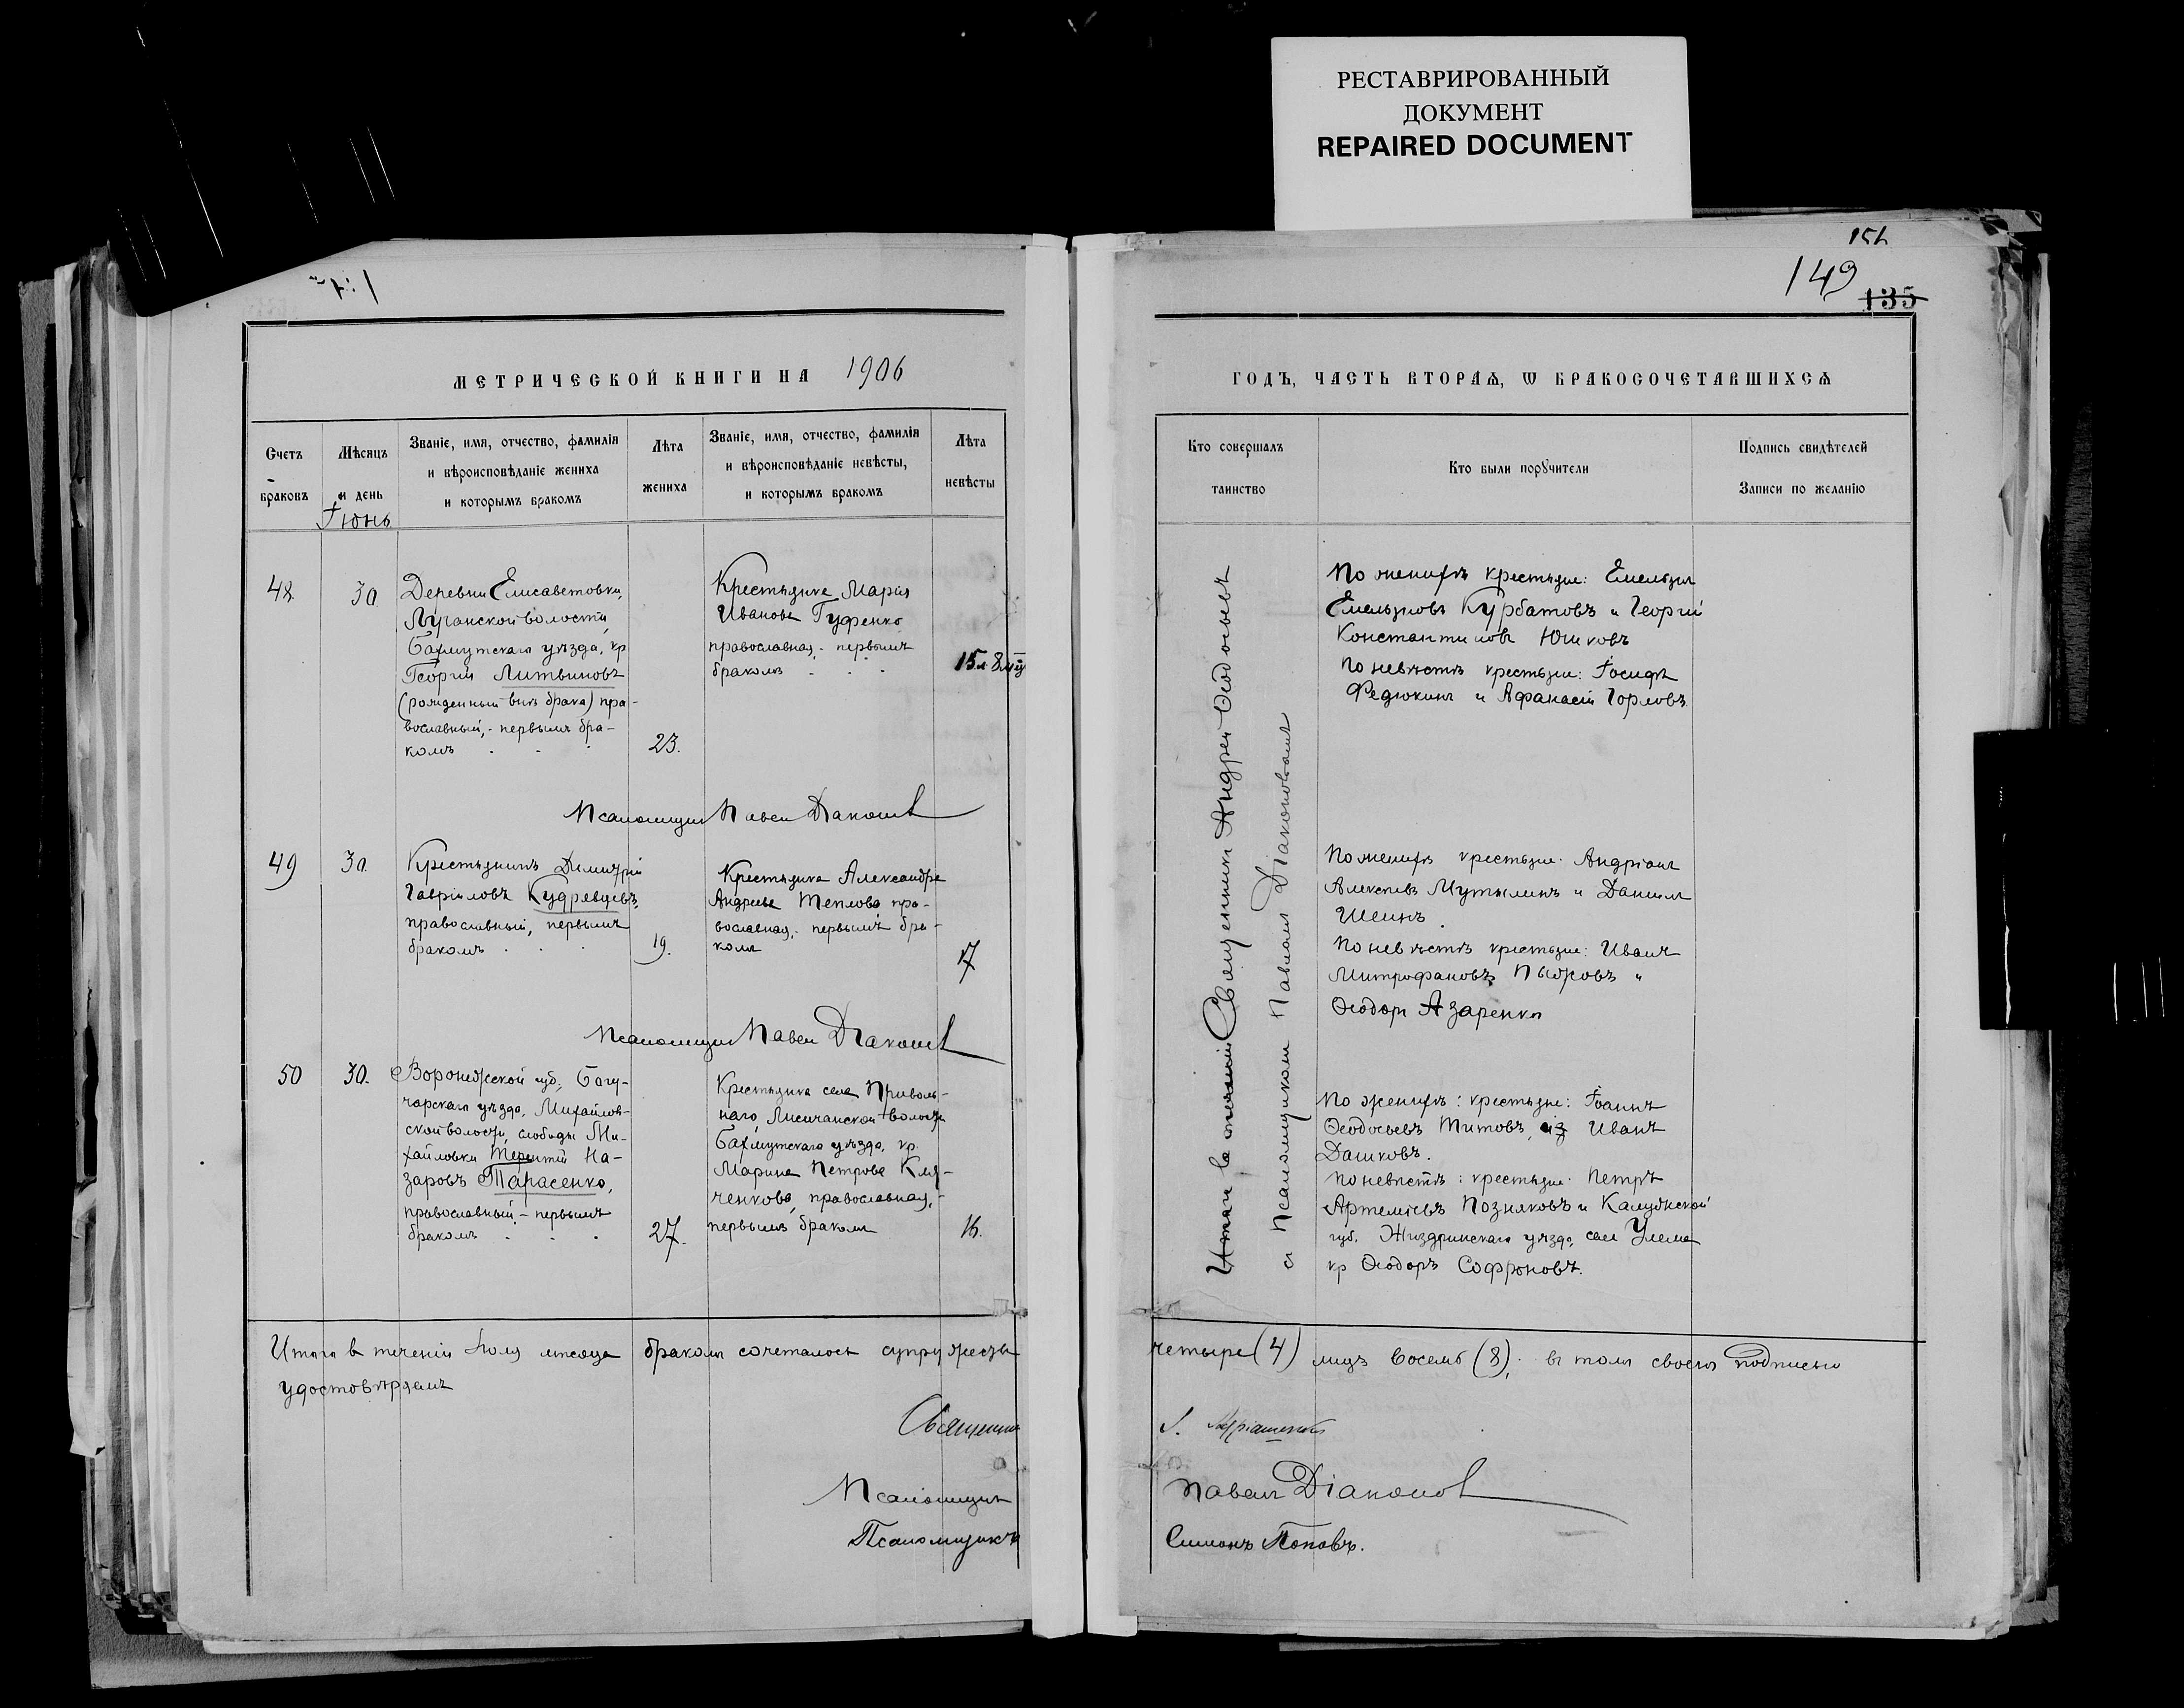 РЕСТАВРИРОВАННЫЙ
ДОКУМЕНТ
REPAIRED DOCUMENT
149
135
МЕТРИЧЕСКОЙ КНИГИ НА 1906
Счетъ
браковъ
Мѣсяцъ
и день
Іюнь
Званіе, имя, отчество, фамилія
и вѣроисповѣданіе жениха
и которымъ бракомъ
Лѣта
жениха
Званіе, имя, отчество, фамилія
и вѣроисповѣданіе невѣсты,
и которымъ бракомъ
Лѣта
невѣсты
48
30
Деревни Елисаветовки,
Луганской волости,
Бахмутскаго уѣзда, кр
Георгій Литвиновъ
(рожденный внѣ брака) пра-
вославный, - первымъ бра-
комъ
23.
Крестьянка Марія
Иванова Гуфенко
православная, - первымъ
бракомъ
15 л. 8 м-ц
Псаломщикъ Павелъ Діаконовъ
49
30.
Крестьянинъ Димитрій
Гавріиловъ Кудревцевъ,
православный, первымъ
бракомъ
19.
Крестьянка Александра
Андреева Теплова пра-
вославная, - первымъ бра-
комъ
17
Псаломщикъ Павелъ Діаконовъ
50
30.
Воронежской губ., Богу-
чарскаго уѣзда, Михайлов-
ской волости, слободы Ми-
хайловки Терентій На-
заровъ Тарасенко,
православный, - первымъ
бракомъ
27.
Крестьянка села Приволь-
наго, Лисичанской волости
Бахмутскаго уѣзда, кр.
Марина Петрова Кля-
ченкова, православная, -
первымъ бракомъ
16.
Итого въ теченіи Іюня мѣсяца бракомъ сочеталось супружествъ
удостовѣряемъ
Священникъ
Псаломщикъ
Псаломщикъ
ГОДЪ, ЧАСТЬ ВТОРАѦ, Ѡ БРАКОСОЧЕТАВШИХСѦ
Кто совершалъ
таинство
Кто были поручители
Подпись свидѣтелей
Записи по желанію
Итого въ теченіи Священникъ Андрей Ѳедоновъ
съ Псаломщикомъ Павломъ Діаконовымъ
По женихѣ крестьяне: Емельянъ
Емельяновъ Курбатовъ и Георгій
Константиновъ Юшковъ
По невѣстѣ крестьяне: Іосифъ
Федюкинъ и Афанасій Горловъ.
По женихѣ крестьяне: Андріанъ
Алексѣевъ Мутылинъ и Даніилъ
Шеинъ.
По невѣстѣ крестьяне: Иванъ
Митрофановъ Пыжовъ и
Ѳеодоръ Азаренко
По женихѣ: крестьяне: Іоаннъ
Ѳеодосьевъ Титовъ, и Иванъ
Дашковъ.
По невѣстѣ: крестьяне: Петръ
Артеміевъ Позняковъ и Калужской
губ. Жиздринскаго уѣзда, села Улема
кр Ѳеодоръ Софроновъ.
четыре (4) лицъ восемь (8); въ томъ своею подписью
Павелъ Діаконовъ
Симонъ Поповъ.